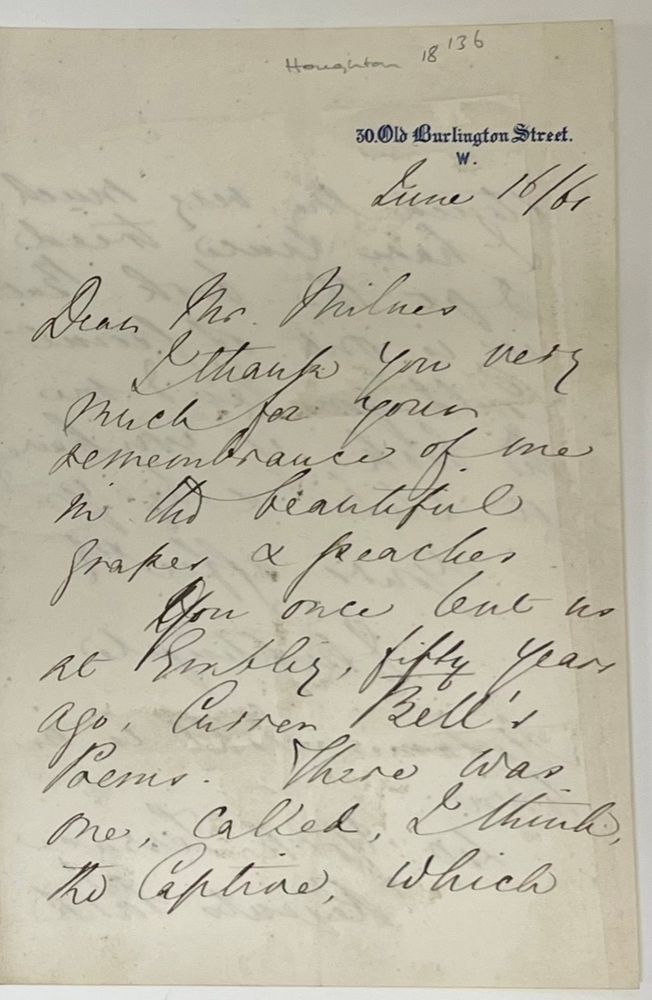 Houghton 18 136
30. Old Burlington Street.
W.
June 16/61
Dear Mr. Milnes
I thank you very
much for your
remembrance of me
in the beautiful
grapes & peaches
You once lent us
at Embley, fifty years
ago, Currer Bell's
Poems. There was
one, called, I think,
the Captive, which